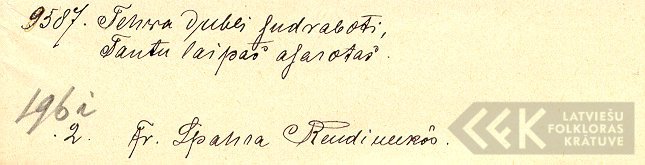 9587. Tehwa dubli sudraboti,
Tautu laipas asarotas.
196 i
2. Fr. Spahra Rendineekôs.
LATVIEŠU
FOLKLORAS
KRĀTUVE